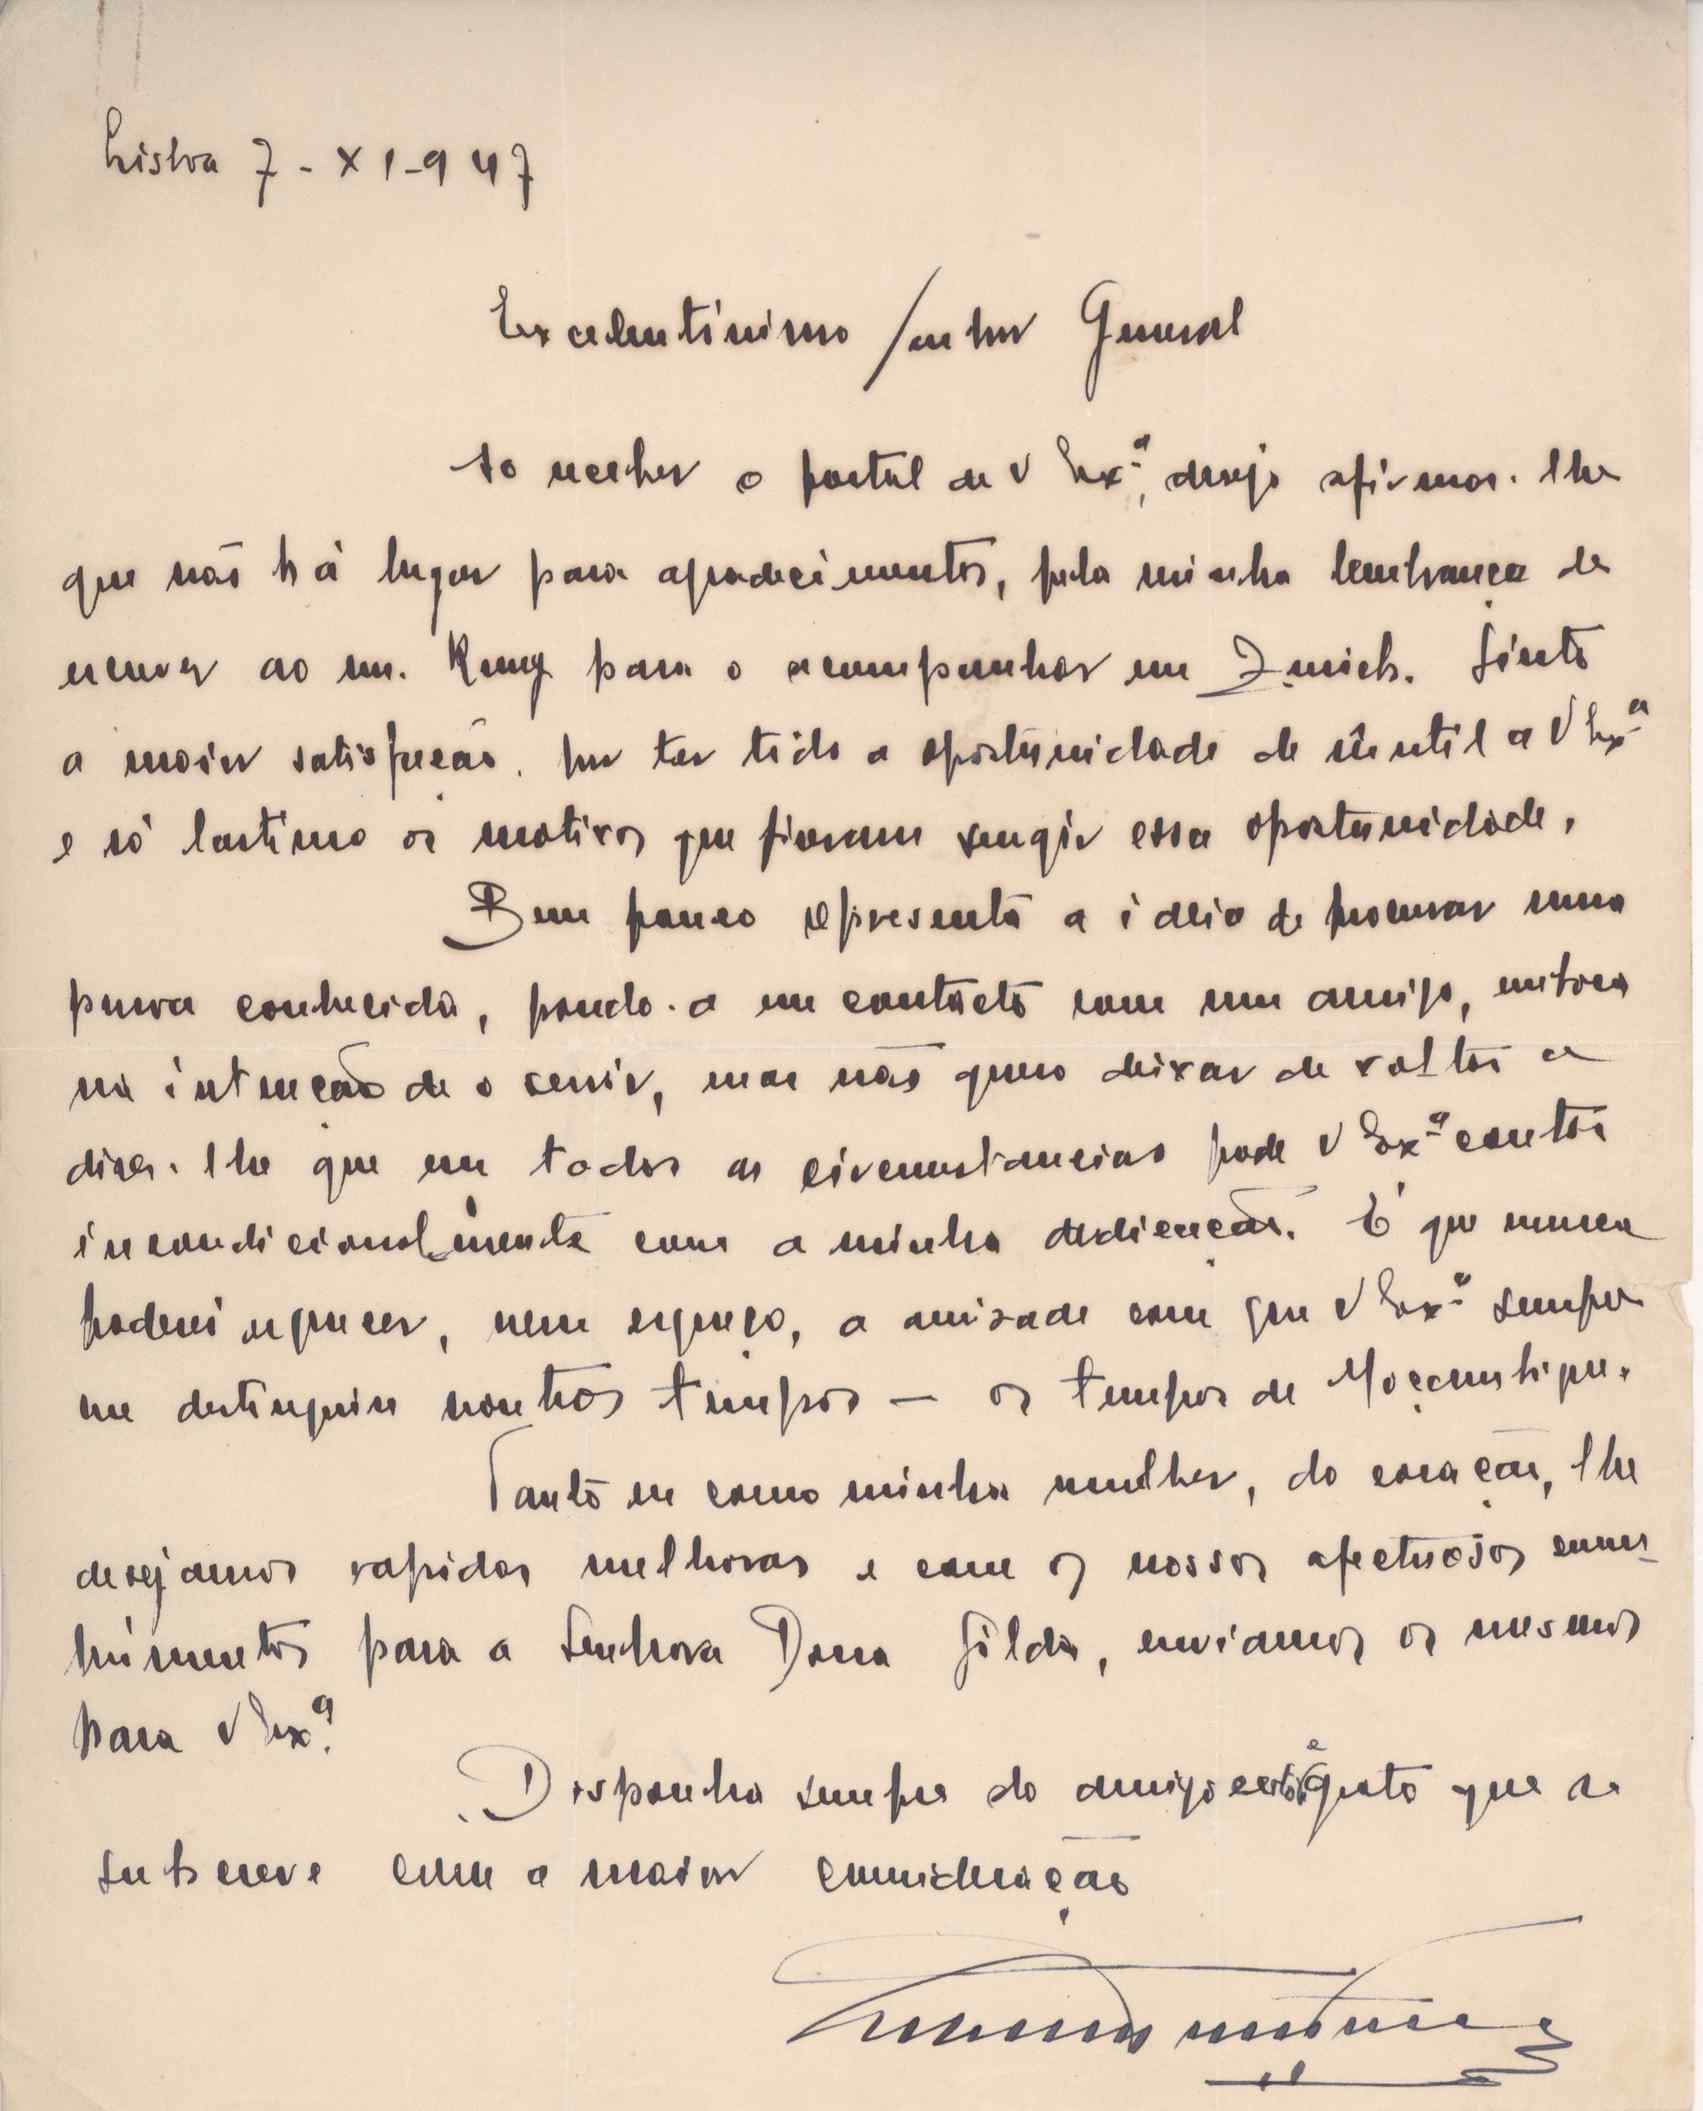 Lisboa 7-XI-947
Excelentissimo Senhor General
Ao receber o postal de V Exª, desejo afirmar-lhe
que não há lugar para agradecimentos, pela minha lembrança de
escrever ao mr. Kung para o acompanhar em Zurich. Sinto
a maior satisfação, por ter tido a oportunidade de ser util a V Exª
e só lastimo os motivos que fizeram surgir essa oportunidade.
Bem pouco representa a ideia de procurar uma
pessoa conhecida, pondo-a em contacto com um amigo, embora
na intenção de o servir, mas não quero deixar de voltar a
dizer-lhe que em todas as circunstancias pode V Exª contar
incondicionalmente com a minha dedicação. É que nunca
poderei esquecer, nem esqueço, a amizade com que V Exª sempre
me distinguiu noutros tempos — os tempos de Moçambique.
Tanto eu como minha mulher, do coração, lhe
desejamos rapidas melhoras e com os nossos afectuosos cumpri-
mentos para a Senhora Dona Gilda, enviamos os mesmos
para V Exª.
Disponha sempre do amigo certo e grato que se
subscreve com a maior consideração